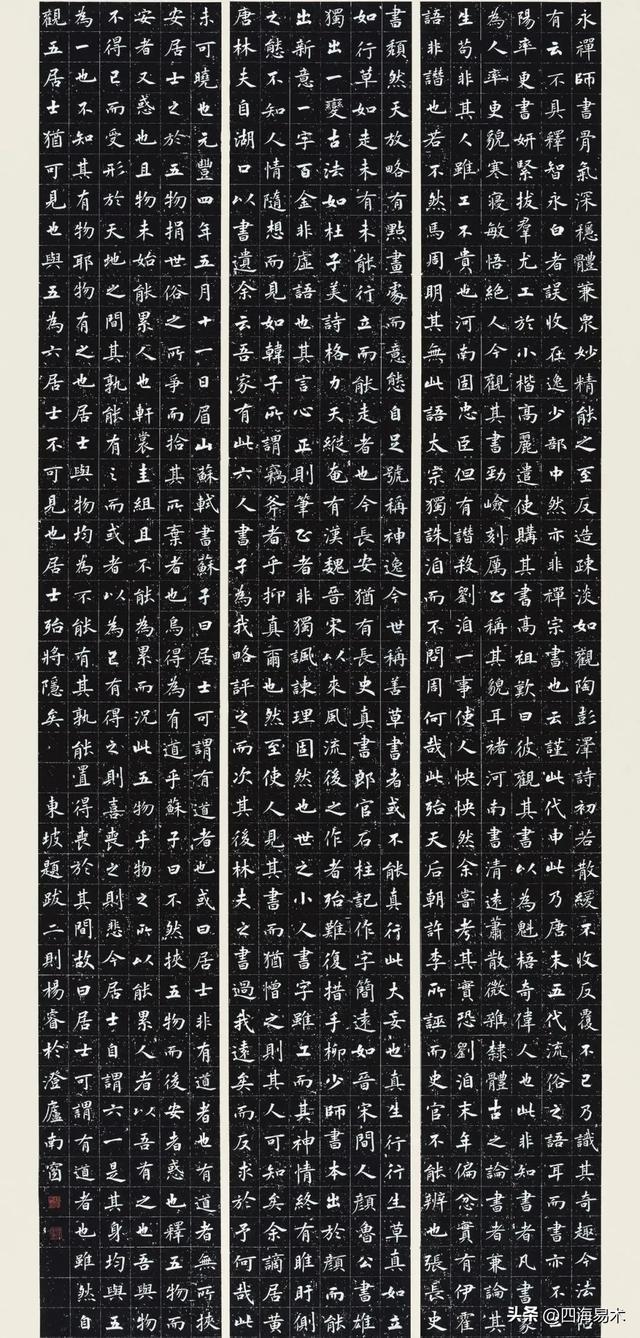 永禪師書骨氣深穩體兼衆妙精能之至反造疎淡如觀陶彭澤詩初若散緩不收反覆不已乃識其奇趣今法
有云不具釋智永白者誤收在逸少部中然亦非禪宗書也云謹此代申此乃唐末五代流俗之語耳而書亦不
陽率更書妍緊拔羣尤工於小楷高麗遣使購其書高祖歎曰彼觀其書以為魁梧奇偉人也此非知書者凡書象
為人率更貌寒寢敏悟絕人今觀其書勁嶮刻厲正稱其貌耳褚河南書清遠蕭散微雜隸體古之論書者兼論其
生苟非其人雖工不貴也河南固忠臣但有譖殺劉洎一事使人怏怏然余嘗考其實恐劉洎末年偏忿實有伊霍
語非譖也若不然馬周明其無此語太宗獨誅洎而不問周何哉此殆天后朝許李所誣而史官不能辨也張長史
書頹然天放略有點畫處而意態自足號稱神逸今世稱善草書者或不能真行此大妄也真生行行生草真如立
如行草如走未有未能行立而能走者也今長安猶有長史真書郎官石柱記作字簡遠如晉宋間人顏魯公書雄
獨出一變古法如杜子美詩格力天縱奄有漢魏晉宋以來風流後之作者殆難復措手柳少師書本出於顏而能
出新意一字百金非虛語也其言心正則筆正者非獨諷諫理固然也世之小人書字雖工而其神情終有睢盱側
之態不知人情隨想而見如韓子所謂竊斧者乎抑真爾也然至使人見其書而猶憎之則其人可知矣余謫居黃
唐林夫自湖口以書遺余云吾家有此六人書子為我略評之而次其後林夫之書過我遠矣而反求於予何哉此
未可曉也元豐四年五月十一日眉山蘇軾書蘇子曰居士可謂有道者也或曰居士非有道者也有道者無所挾
安居士之於五物捐世俗之所爭而拾其所棄者也烏得為有道乎蘇子曰不然挾五物而後安者惑也釋五物而
安者又惑也且物未始能累人也軒裳圭組且不能為累而況此五物乎物之所以能累人者以吾有之也吾與物
不得已而受形於天地之間其孰能有之而或者以為己有得之則喜喪之則悲今居士自謂六一是其身均與五
為一也不知其有物耶物有之也居士與物均為不能有其孰能置得喪於其間故曰居士可謂有道者也雖然自
觀五居士猶可見也與五為六居士不可見也居士殆將隱矣 東坡題跋二則楊睿於澄廬南窗
头条 @四海易术